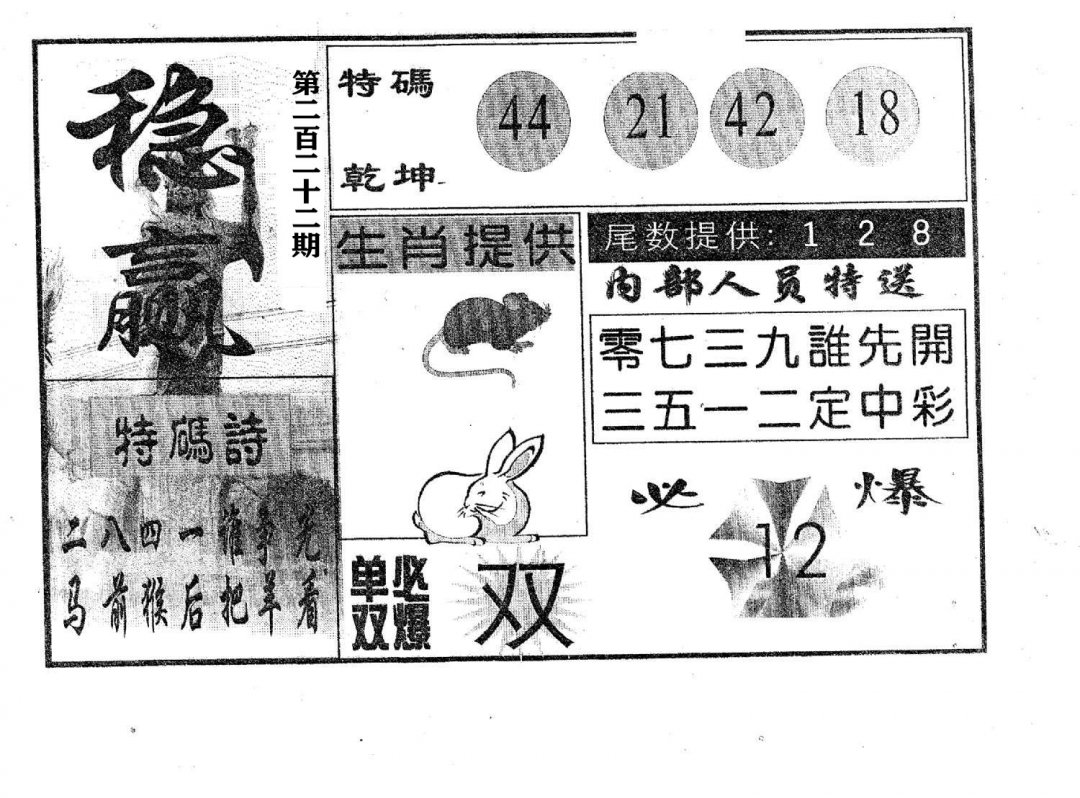 稳赢
第二百二十二期
特碼
乾坤
44 21 42 18
生肖提供
尾数提供: 1 2 8
内部人员特送
零七三九誰先開
三五一二定中彩
特碼詩
二八四一 争先
马前猴后把羊看
必爆
12
单双必爆
双